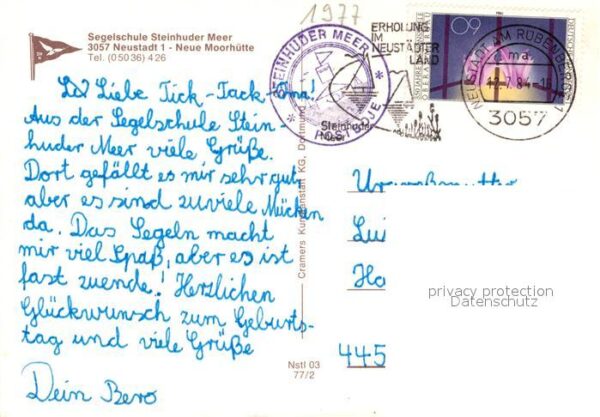 1977
Segelschule Steinhuder Meer
3057 Neustadt 1 - Neue Moorhütte
Tel. (05036) 426
STEINHUDER MEER
POSTBOJE
ERHOLUNG
IM
NEUSTÄDTER
LAND
Steinhuder
Meer
NEUSTADT AM RÜBENBERGE 1
ma
12.7.84-15
3057
60
Liebe Tick-Tack-Oma!
Aus der Segelschule Stein-
huder Meer viele Grüße.
Dort gefällt es mir sehr gut,
aber es sind zuviele Mücken
da. Das Segeln macht
mir viel Spaß, aber es ist
fast zuende! Herzlichen
Glückwunsch zum Geburts-
tag und viele Grüße
Dein Bero
Cramers Kunstanstalt KG, Dortmund
Nstl 03
77/2
Lui
Ha
445
privacy protection
Datenschutz